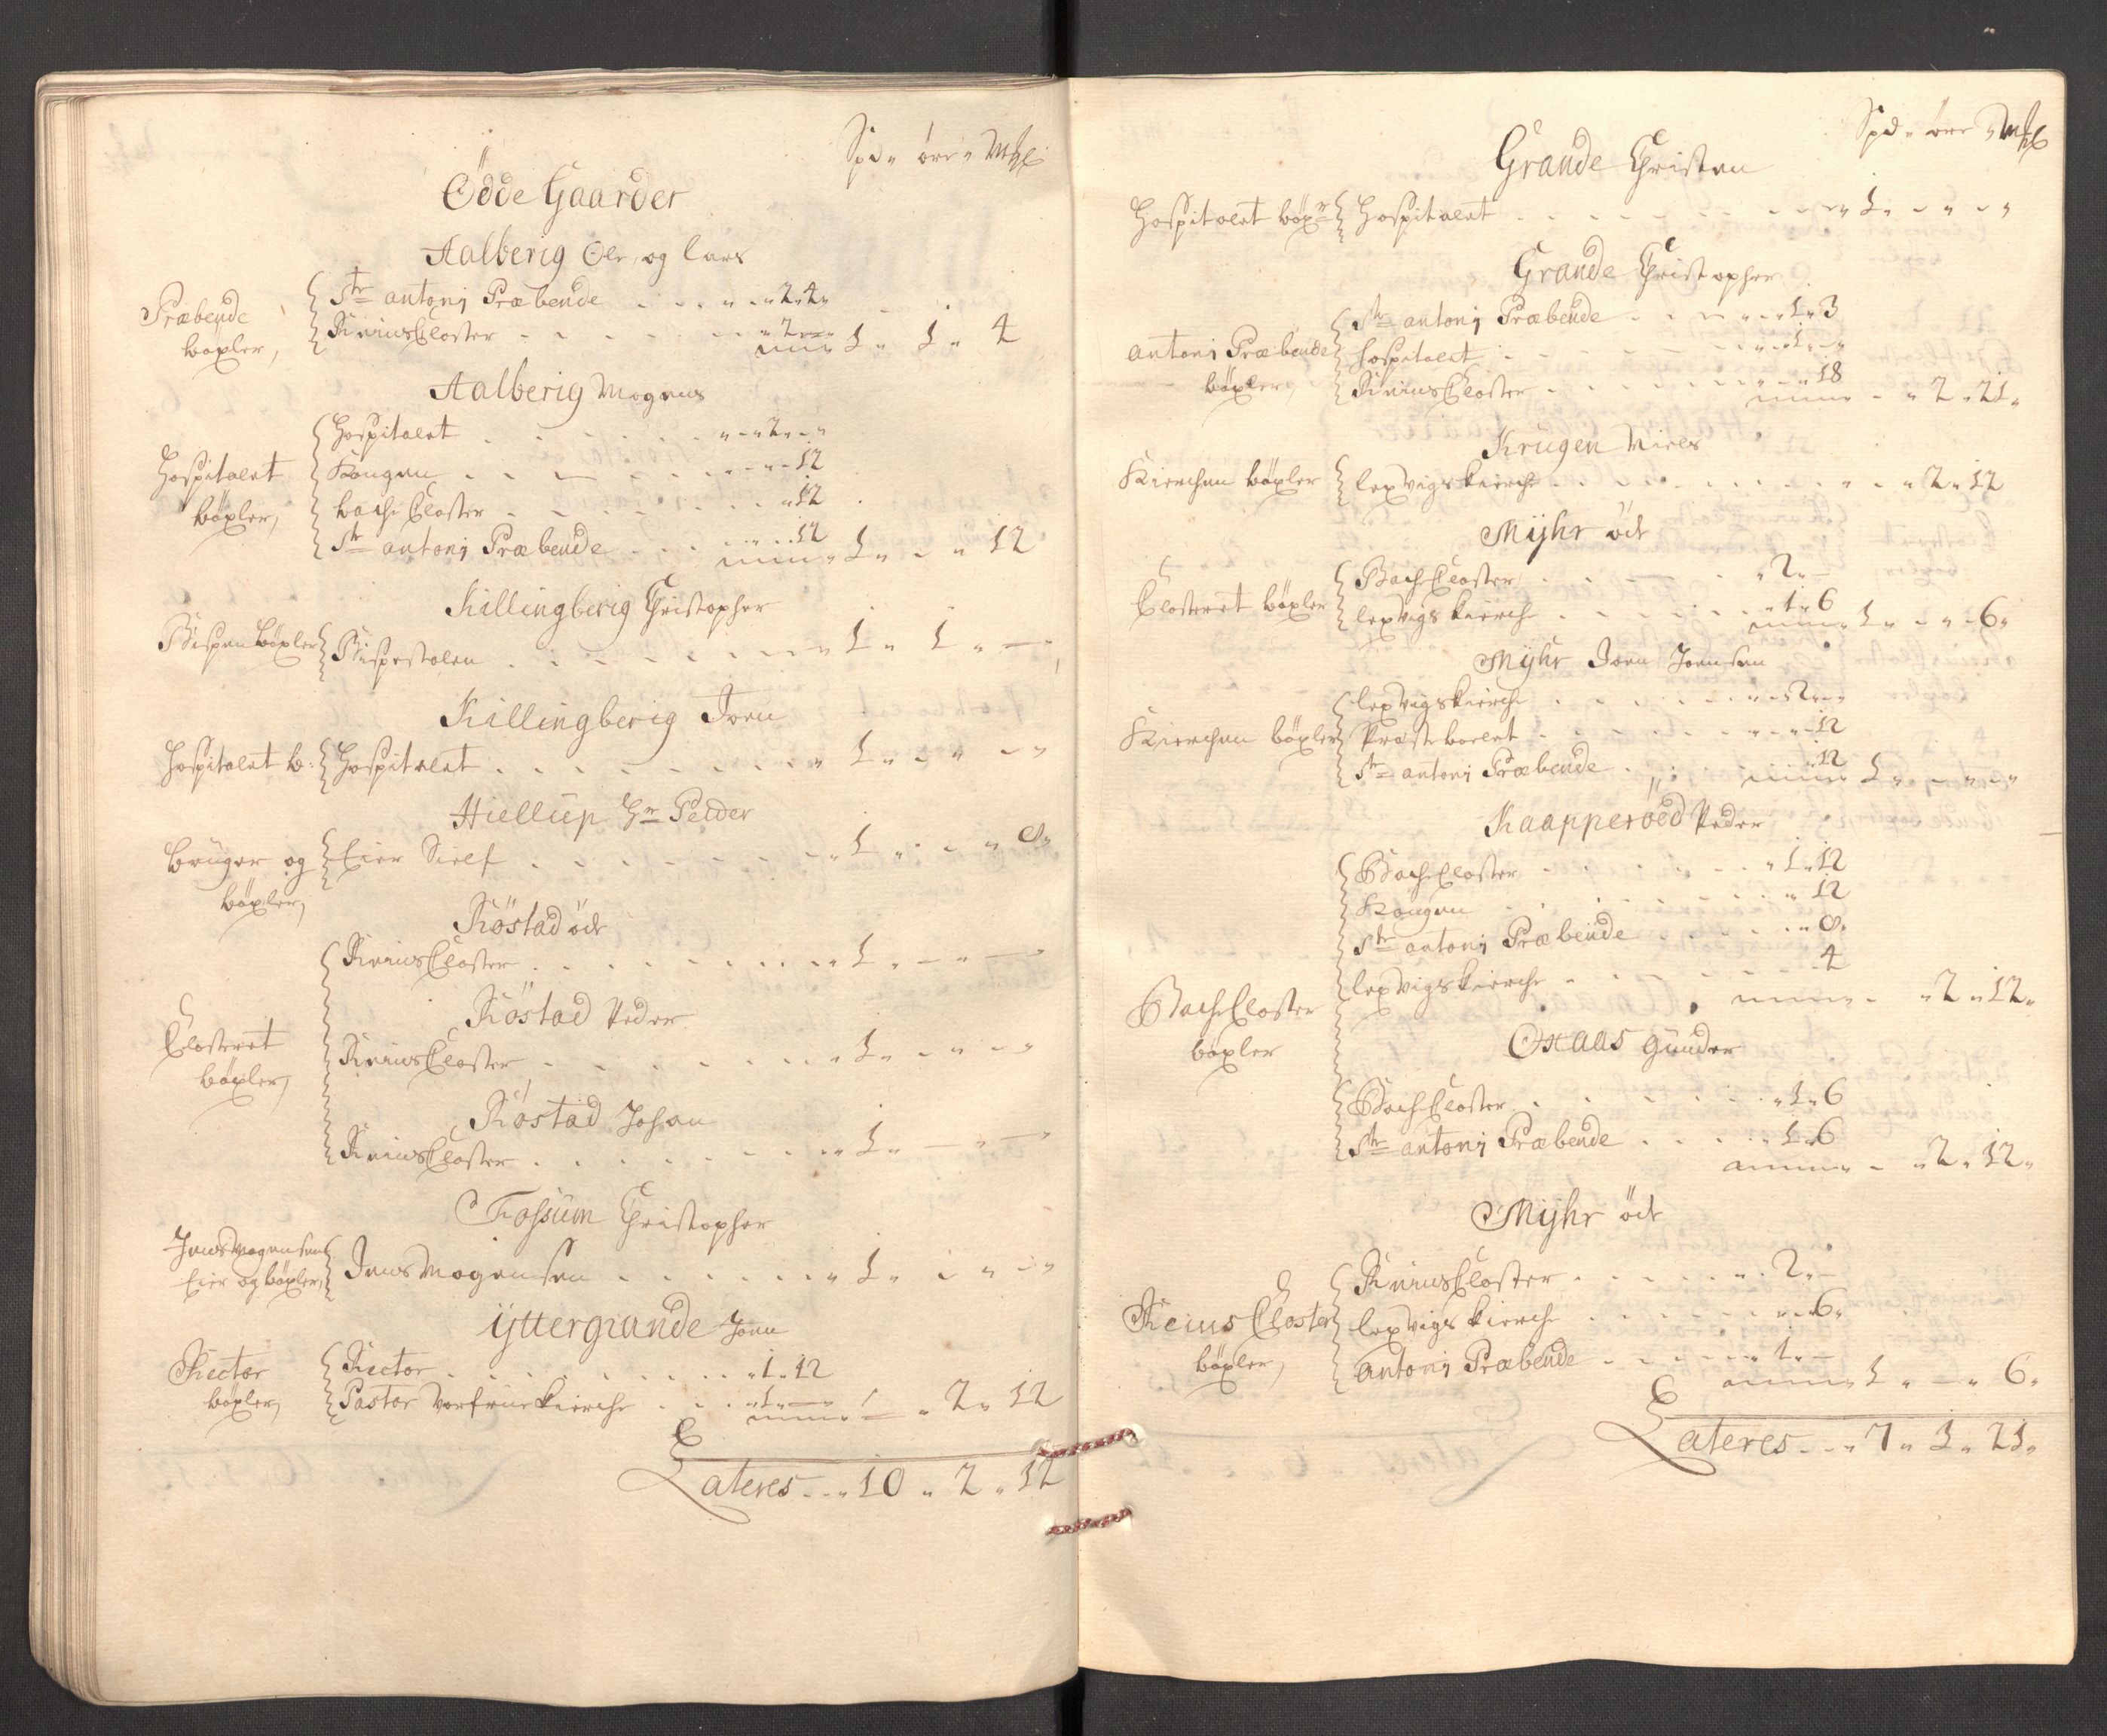 Spd " øre " Mkl
Ödde Gaarder
Aalberig Ole, og Lars
Præbende
böxler,
Str antonj Præbende . . . " - " 2 " 4 "
Reinsckloster - . . . . " 2 " —
" 1 " 1 " 4
Aalberig Mogens
Hospitalet
böxler,
Hospitalet . . . . . . " - " 2 " - "
Kongen . . . . . . . " - " - 12
bache Closter . . . . . . " 12
Str antonj Præbende . . . . " - 12
" 1 " - " 12
Killingberig Christopher
Bispen böxler
Bispestolen . . . . . . . " 1 " 1 " —
Killingberig Joen
Hospitalet b:
Hospitalet . . . . . . . . " 1 " - " - "
Hiellup Hr Peider
bruger og
böxler,
Eier Sielf . . . . . . . . " 1 " - " 8 "
Röstad öde
Reins Closter . . . . . . . . " 1 " — " —
Closteret
böxler,
Röstad Peder
Reins Closter . . . . . . . " 1 " - " - "
Röstad Johan
Reins Closter . . . . . . . . " 1 " — " —
Fossum Christopher
Jens Mogensen
Eier og böxler,
Jens Mogensen . . . . . . " 1 " - " - "
Yttergrande Joen
Rector
böxler,
Rector . . . . . . . . " 1 " 12
Pastor Vorfrue kierche . . . " 1 " —
" 2 " 12
Lateres - - " 10 " 2 " 12
Spd " øre " Mkl
Grande Christen
Hospitalet böxr
Hospitalet . . . . . . . . " 1 " - " - "
Grande Christopher
antoni Præbende
böxler,
Str antonj Præbende . . . . . " 1 " 3
Hospitalet . . . . . . . " 1 " - "
Reins Closter . . . . . . . " - " 18
- " 2 " 21 "
Krugen Niels
Kierchen böxler
lexvigs kierche . . . . . . . . . " 2 " 12
Myhr öde
Closteret böxler
Bache Closter . . . . . . " 2 " —
lexvigs kierche . . . . . . " 1 " 6
" 1 " - " - 6 "
Myhr Joen Joensen
Kierchen böxler
lexvigs kierche . . . . . . " - " 2 " - "
Præsteboelet . . . . . . . " - " 12
Str antonj Præbende . . . . " 12
" 1 " - " - "
Kaapperöed Peder
Bache Closter . . . . . . " 1 " 12
Kongen . . . . . . . . " 12
Str antonj Præbende . . . . . " 8 "
lexvigs kierche . . . . . . . 4
- " 2 " 12 "
Bache Closter
böxler
Ostaas Gunder
Bache Closter . . . . . . . " 1 " 6
Str antonj Præbende . . . . . " 1 " 6
- " 2 " 12 "
Myhr öde
Reins Closter
böxler,
Reins Closter . . . . . . " 2 " —
lexvigs kierche . . . . . . " - " 6 "
Antonj Præbende . . . . . " 1 " —
" 1 " — " 6 "
Lateres - - " 7 " 1 " 21 "